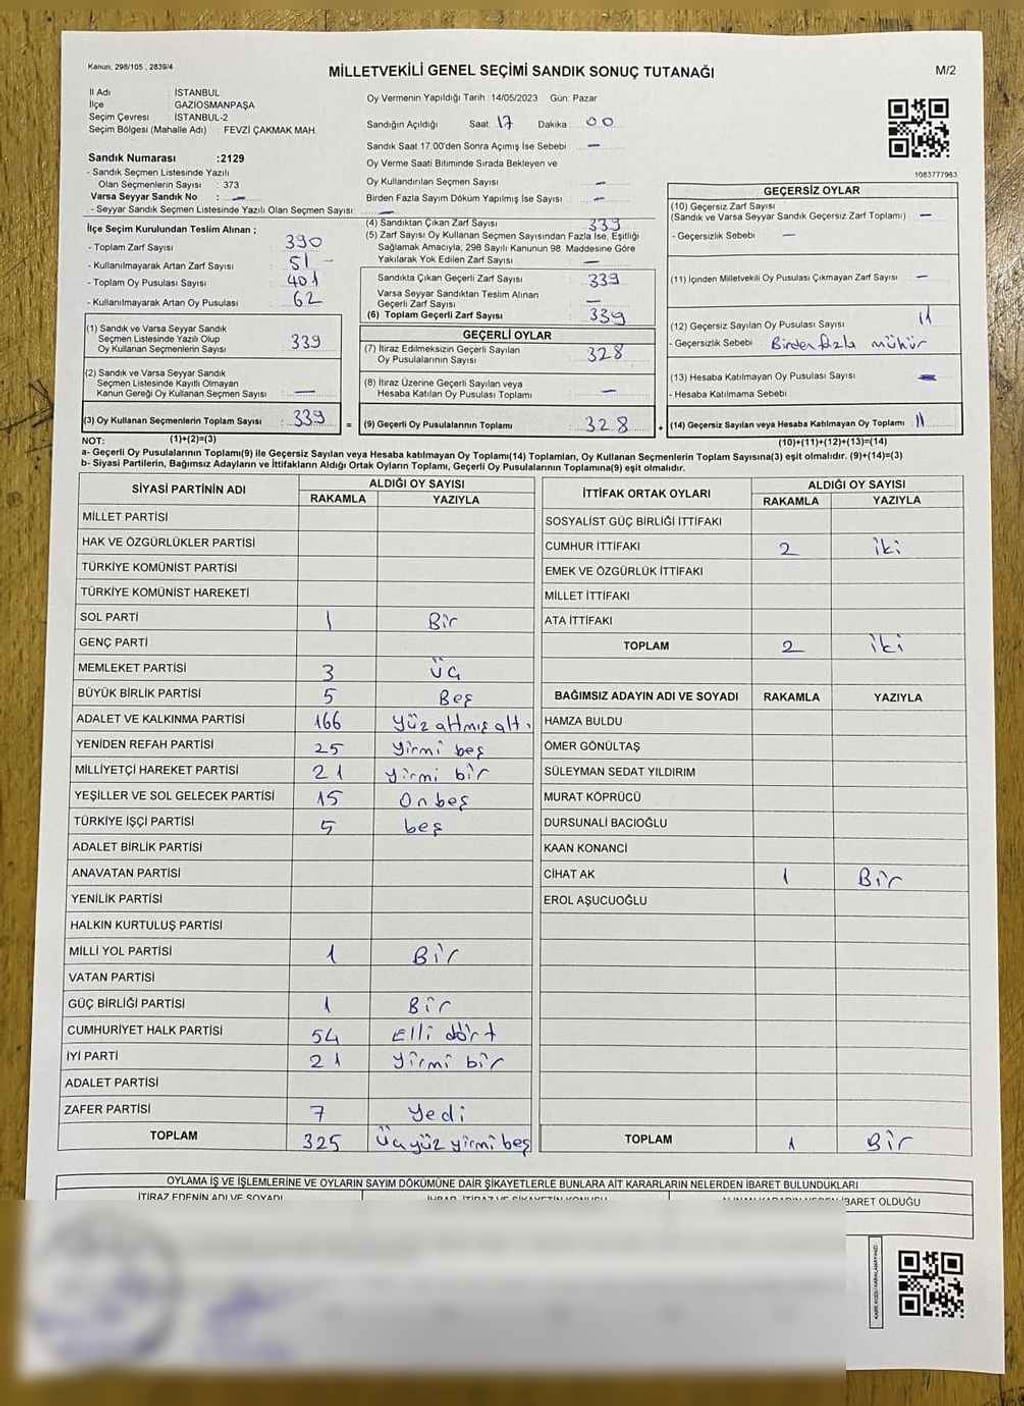 Kanun, 298/105 , 2839/4
MİLLETVEKİLİ GENEL SEÇİMİ SANDIK SONUÇ TUTANAĞI
M/2
İl Adı : İSTANBUL
İlçe : GAZİOSMANPAŞA
Seçim Çevresi : İSTANBUL-2
Seçim Bölgesi (Mahalle Adı) : FEVZİ ÇAKMAK MAH.
Sandık Numarası :2129
- Sandık Seçmen Listesinde Yazılı
Olan Seçmenlerin Sayısı : 373
Varsa Seyyar Sandık No : —
- Seyyar Sandık Seçmen Listesinde Yazılı Olan Seçmen Sayısı : —
İlçe Seçim Kurulundan Teslim Alınan ;
- Toplam Zarf Sayısı : 390
- Kullanılmayarak Artan Zarf Sayısı : 51 -
- Toplam Oy Pusulası Sayısı : 401
- Kullanılmayarak Artan Oy Pusulası : 62
(1) Sandık ve Varsa Seyyar Sandık
Seçmen Listesinde Yazılı Olup
Oy Kullanan Seçmenlerin Sayısı : 339
(2) Sandık ve Varsa Seyyar Sandık
Seçmen Listesinde Kayıtlı Olmayan
Kanun Gereği Oy Kullanan Seçmen Sayısı : —
(3) Oy Kullanan Seçmenlerin Toplam Sayısı : 339 =
(1)+(2)=(3)
Oy Vermenin Yapıldığı Tarih :14/05/2023 Gün: Pazar
Sandığın Açıldığı Saat: 17 Dakika : 00
Sandık Saat 17.00'den Sonra Açımış İse Sebebi : —
Oy Verme Saati Bitiminde Sırada Bekleyen ve
Oy Kullandırılan Seçmen Sayısı : —
Birden Fazla Sayım Döküm Yapılmış İse Sayısı : —
(4) Sandıktan Çıkan Zarf Sayısı : 339
(5) Zarf Sayısı Oy Kullanan Seçmen Sayısından Fazla İse, Eşitliği
Sağlamak Amacıyla, 298 Sayılı Kanunun 98. Maddesine Göre
Yakılarak Yok Edilen Zarf Sayısı : —
Sandıkta Çıkan Geçerli Zarf Sayısı : 339
Varsa Seyyar Sandıktan Teslim Alınan
Geçerli Zarf Sayısı : —
(6) Toplam Geçerli Zarf Sayısı : 339
GEÇERLİ OYLAR
(7) İtiraz Edilmeksizin Geçerli Sayılan
Oy Pusulalarının Sayısı : 328
(8) İtiraz Üzerine Geçerli Sayılan veya
Hesaba Katılan Oy Pusulası Toplamı : —
(9) Geçerli Oy Pusulalarının Toplamı : 328 +
1083777983
GEÇERSİZ OYLAR
(10) Geçersiz Zarf Sayısı
(Sandık ve Varsa Seyyar Sandık Geçersiz Zarf Toplamı) : —
- Geçersizlik Sebebi : —
(11) İçinden Milletvekili Oy Pusulası Çıkmayan Zarf Sayısı : —
(12) Geçersiz Sayılan Oy Pusulası Sayısı : 11
- Geçersizlik Sebebi : Birden fazla mühür
(13) Hesaba Katılmayan Oy Pusulası Sayısı : —
- Hesaba Katılmama Sebebi :
(14) Geçersiz Sayılan veya Hesaba Katılmayan Oy Toplamı : 11
(10)+(11)+(12)+(13)=(14)
NOT:
a- Geçerli Oy Pusulasının Toplamı(9) ile Geçersiz Sayılan veya Hesaba Katılmayan Oy Toplamı(14) Toplamları, Oy Kullanan Seçmenlerin Toplam Sayısına(3) eşit olmalıdır. (9)+(14)=(3)
b- Siyasi Partilerin, Bağımsız Adayların ve İttifakların Aldığı Ortak Oyların Toplamı, Geçerli Oy Pusulalarının Toplamına(9) eşit olmalıdır.
SİYASİ PARTİNİN ADI ALDIĞI OY SAYISI
RAKAMLA YAZIYLA
MİLLET PARTİSİ
HAK VE ÖZGÜRLÜKLER PARTİSİ
TÜRKİYE KOMÜNİST PARTİSİ
TÜRKİYE KOMÜNİST HAREKETİ
SOL PARTİ 1 Bir
GENÇ PARTİ
MEMLEKET PARTİSİ 3 Üç
BÜYÜK BİRLİK PARTİSİ 5 Beş
ADALET VE KALKINMA PARTİSİ 166 Yüz altmış alt.
YENİDEN REFAH PARTİSİ 25 Yirmi beş
MİLLİYETÇİ HAREKET PARTİSİ 21 yirmi bir
YEŞİLLER VE SOL GELECEK PARTİSİ 15 On beş
TÜRKİYE İŞÇİ PARTİSİ 5 beş
ADALET BİRLİK PARTİSİ
ANAVATAN PARTİSİ
YENİLİK PARTİSİ
HALKIN KURTULUŞ PARTİSİ
MİLLİ YOL PARTİSİ 1 Bir
VATAN PARTİSİ
GÜÇ BİRLİĞİ PARTİSİ 1 Bir
CUMHURİYET HALK PARTİSİ 54 Elli dört
İYİ PARTİ 21 Yirmi bir
ADALET PARTİSİ
ZAFER PARTİSİ 7 Yedi
TOPLAM 325 Üçyüz yirmi beş
İTTİFAK ORTAK OYLARI ALDIĞI OY SAYISI
RAKAMLA YAZIYLA
SOSYALİST GÜÇ BİRLİĞİ İTTİFAKI
CUMHUR İTTİFAKI 2 iki
EMEK VE ÖZGÜRLÜK İTTİFAKI
MİLLET İTTİFAKI
ATA İTTİFAKI
TOPLAM 2 iki
BAĞIMSIZ ADAYIN ADI VE SOYADI RAKAMLA YAZIYLA
HAMZA BULDU
ÖMER GÖNÜLTAŞ
SÜLEYMAN SEDAT YILDIRIM
MURAT KÖPRÜCÜ
DURSUNALİ BACIOĞLU
KAAN KONANCİ
CİHAT AK 1 Bir
EROL AŞUCUOĞLU
TOPLAM 1 Bir
OYLAMA İŞ VE İŞLEMLERİNE VE OYLARIN SAYIM DÖKÜMÜNE DAİR ŞİKAYETLERLE BUNLARA AİT KARARLARIN NELERDEN İBARET BULUNDUKLARI
İTİRAZ EDENİN ADI VE SOYADI
İBARET OLDUĞU